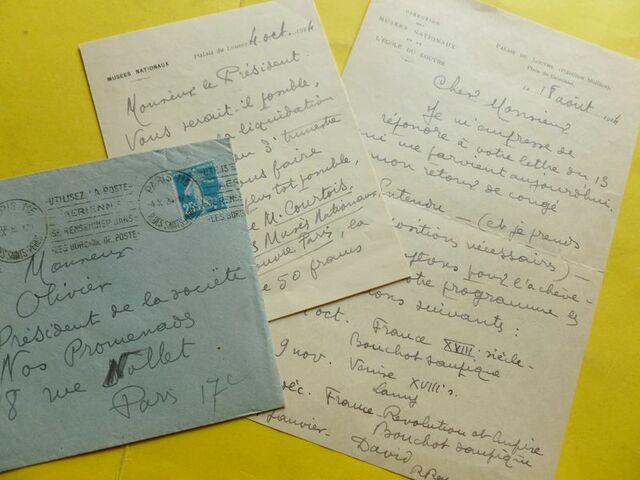 MUSÉES NATIONAUX
Palais du Louvre, 4 oct. 1924
Monsieur le Président:
Vous serait-il possible,
la liquidation
3e trimestre
faire
plus tot possible,
de M. Courtois,
Musées Nationaux,
Louvre, Paris, la
de 50 francs
DIRECTION
DES
MUSÉES NATIONAUX
ET DE
L'ÉCOLE DU LOUVRE
PALAIS DU LOUVRE (Pavillon Mollien)
Place du Carrousel
18 août 1924
Cher Monsieur
Je m'empresse de
répondre à votre lettre du 13
qui me parvient aujourd'hui.
mon retour de congé
Entendu — (et je prends
dispositions nécessaires) —
pour l'achève-
votre programme les
suivants:
oct. France XVIII siècle-
Bouchot-Saupique
9 nov. Venise XVIII s.
Lamy
déc. France-Révolution et Empire
Bouchot-Saupique
Janvier- David
PARIS
UTILISEZ LA POSTE
AERIENNE
SE RENSEIGNER DANS
LES BUREAUX DE POSTE
PARIS
4 X 24
25c
Monsieur
Olivier
Président de la société
Nos Promenades
8 rue Nollet
Paris 17e